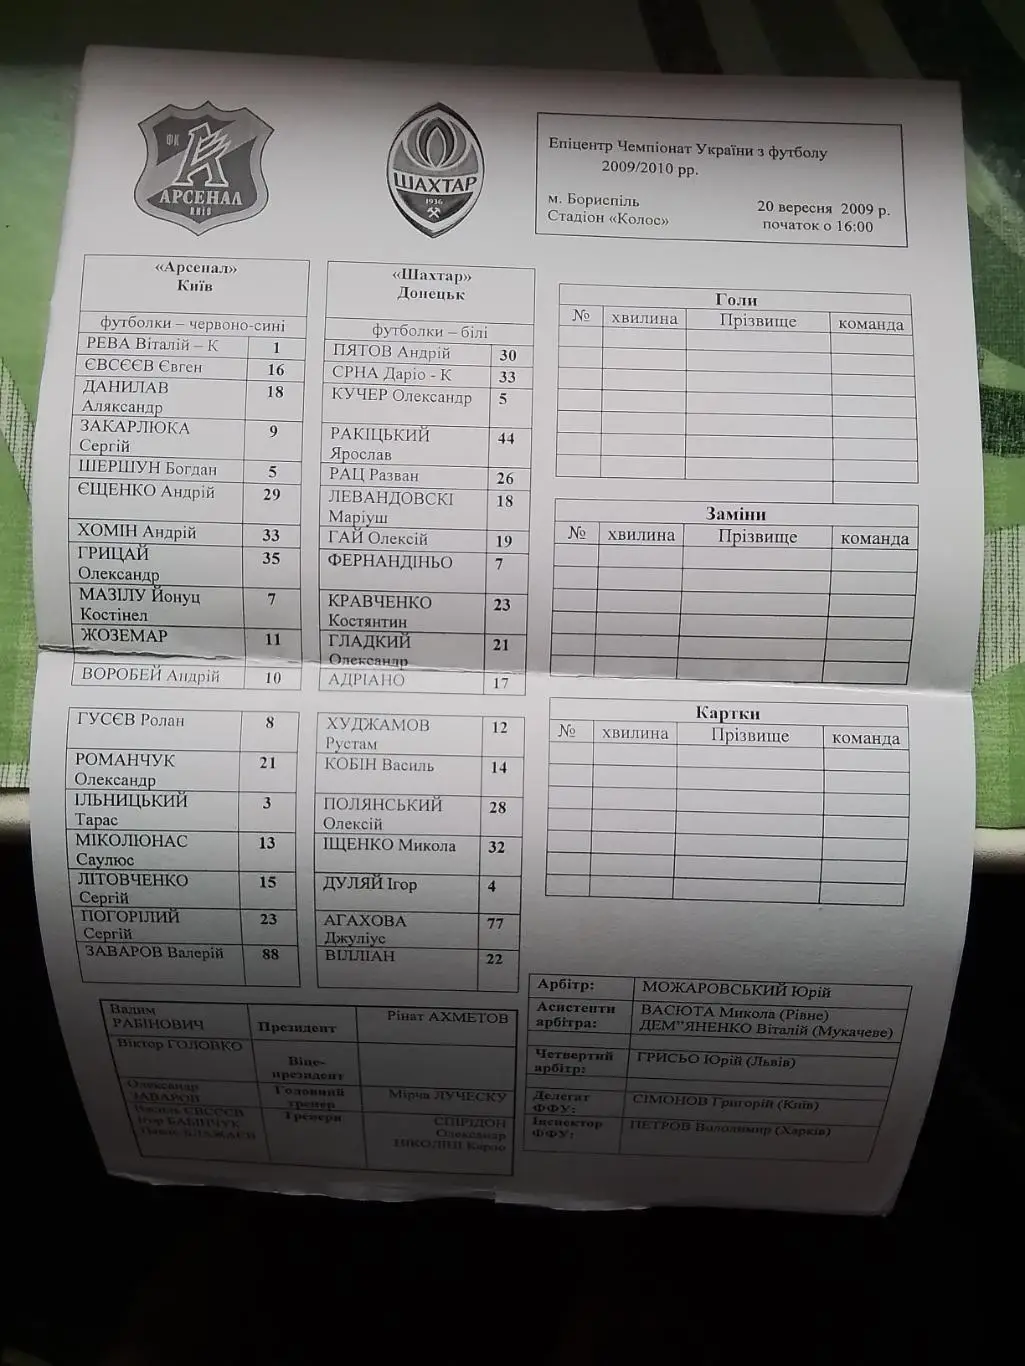 ФК
АРСЕНАЛ
КИЇВ
ШАХТАР
1936
Епіцентр Чемпіонат України з футболу
2009/2010 рр.
м. Бориспіль 20 вересня 2009 р.
Стадіон «Колос» початок о 16:00
«Арсенал»
Київ
футболки – червоно-сині
РЕВА Віталій – К 1
ЄВСЄЄВ Євген 16
ДАНИЛАВ 18
Аляксандр
ЗАКАРЛЮКА 9
Сергій
ШЕРШУН Богдан 5
ЄЩЕНКО Андрій 29
ХОМІН Андрій 33
ГРИЦАЙ 35
Олександр
МАЗІЛУ Йонуц 7
Костінел
ЖОЗЕМАР 11
ВОРОБЕЙ Андрій 10
ГУСЄВ Ролан 8
РОМАНЧУК 21
Олександр
ІЛЬНИЦЬКИЙ 3
Тарас
МІКОЛЮНАС 13
Саулюс
ЛІТОВЧЕНКО 15
Сергій
ПОГОРІЛИЙ 23
Сергій
ЗАВАРОВ Валерій 88
«Шахтар»
Донецьк
футболки – білі
ПЯТОВ Андрій 30
СРНА Даріо - К 33
КУЧЕР Олександр 5
РАКІЦЬКИЙ 44
Ярослав
РАЦ Разван 26
ЛЕВАНДОВСКІ 18
Маріуш
ГАЙ Олексій 19
ФЕРНАНДІНЬО 7
КРАВЧЕНКО 23
Костянтин
ГЛАДКИЙ 21
Олександр
АДРІАНО 17
ХУДЖАМОВ 12
Рустам
КОБІН Василь 14
ПОЛЯНСЬКИЙ 28
Олексій
ІЩЕНКО Микола 32
ДУЛЯЙ Ігор 4
АГАХОВА 77
Джуліус
ВІЛЛІАН 22
Голи
№ хвилина Прізвище команда
Заміни
№ хвилина Прізвище команда
Картки
№ хвилина Прізвище команда
Вадим
РАБІНОВИЧ Президент Рінат АХМЕТОВ
Віктор ГОЛОВКО Віце-
президент
Олександр Головний Мірча ЛУЧЕСКУ
ЗАВАРОВ тренер
Василь ЄВСЄЄВ Тренери СПІРІДОН
Ігор БАБІНЧУК Олександр
БЛАЖАЄВ НІКОЛІНІ Карло
Арбітр: МОЖАРОВСЬКИЙ Юрій
Асистенти ВАСЮТА Микола (Рівне)
арбітра: ДЕМ"ЯНЕНКО Віталій (Мукачеве)
Четвертий ГРИСЬО Юрій (Львів)
арбітр:
Делегат СІМОНОВ Григорій (Київ)
ФФУ:
Інспектор ПЕТРОВ Володимир (Харків)
ФФУ: